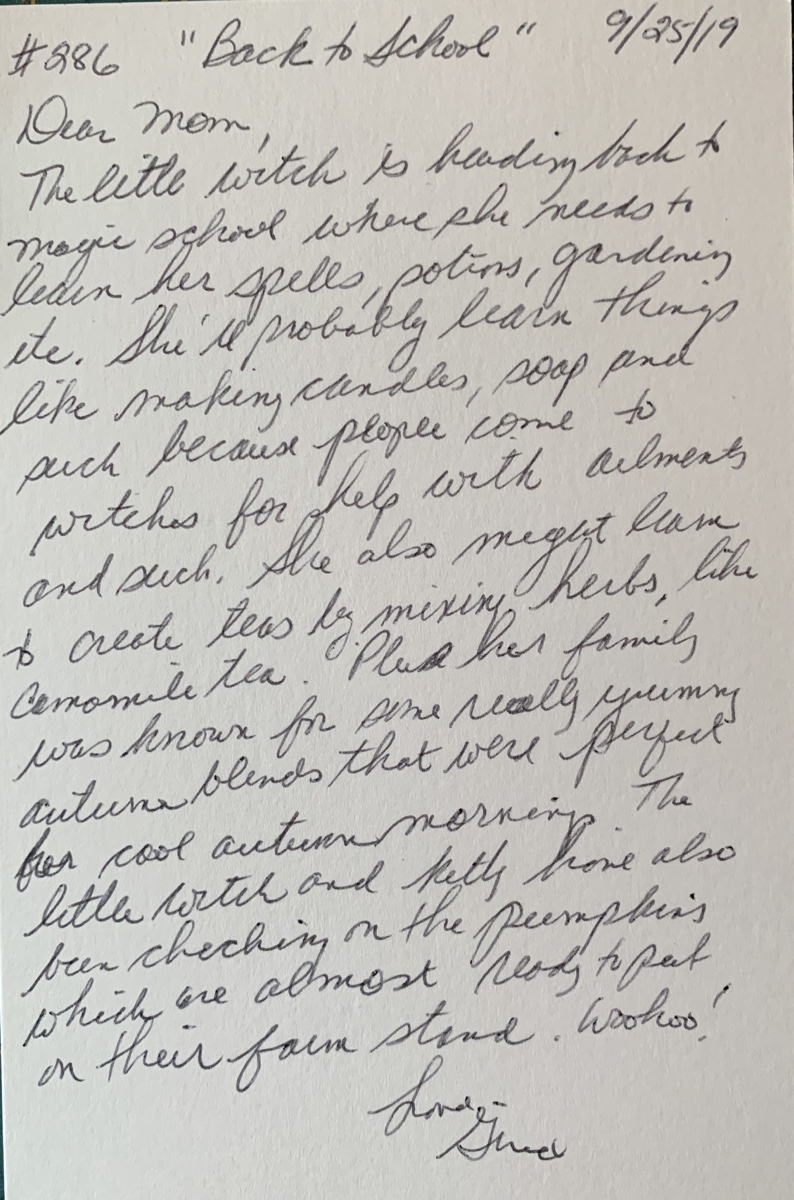 #286 "Back to School" 9/25/19
Dear Mom,
The little witch is heading back to
magic school where she needs to
learn her spells, potions, gardening
etc. She'll probably learn things
like making candles, soap and
such because people come to
witches for help with ailments
and such. She also might learn
to create teas by mixing herbs, like
Camomile tea. Plus her family
was known for some really yummy
autumn blends that were perfect
for cool autumn mornings. The
little witch and kitty have also
been checking on the pumpkins
which are almost ready to put
on their farm stand. Woohoo!
Love,